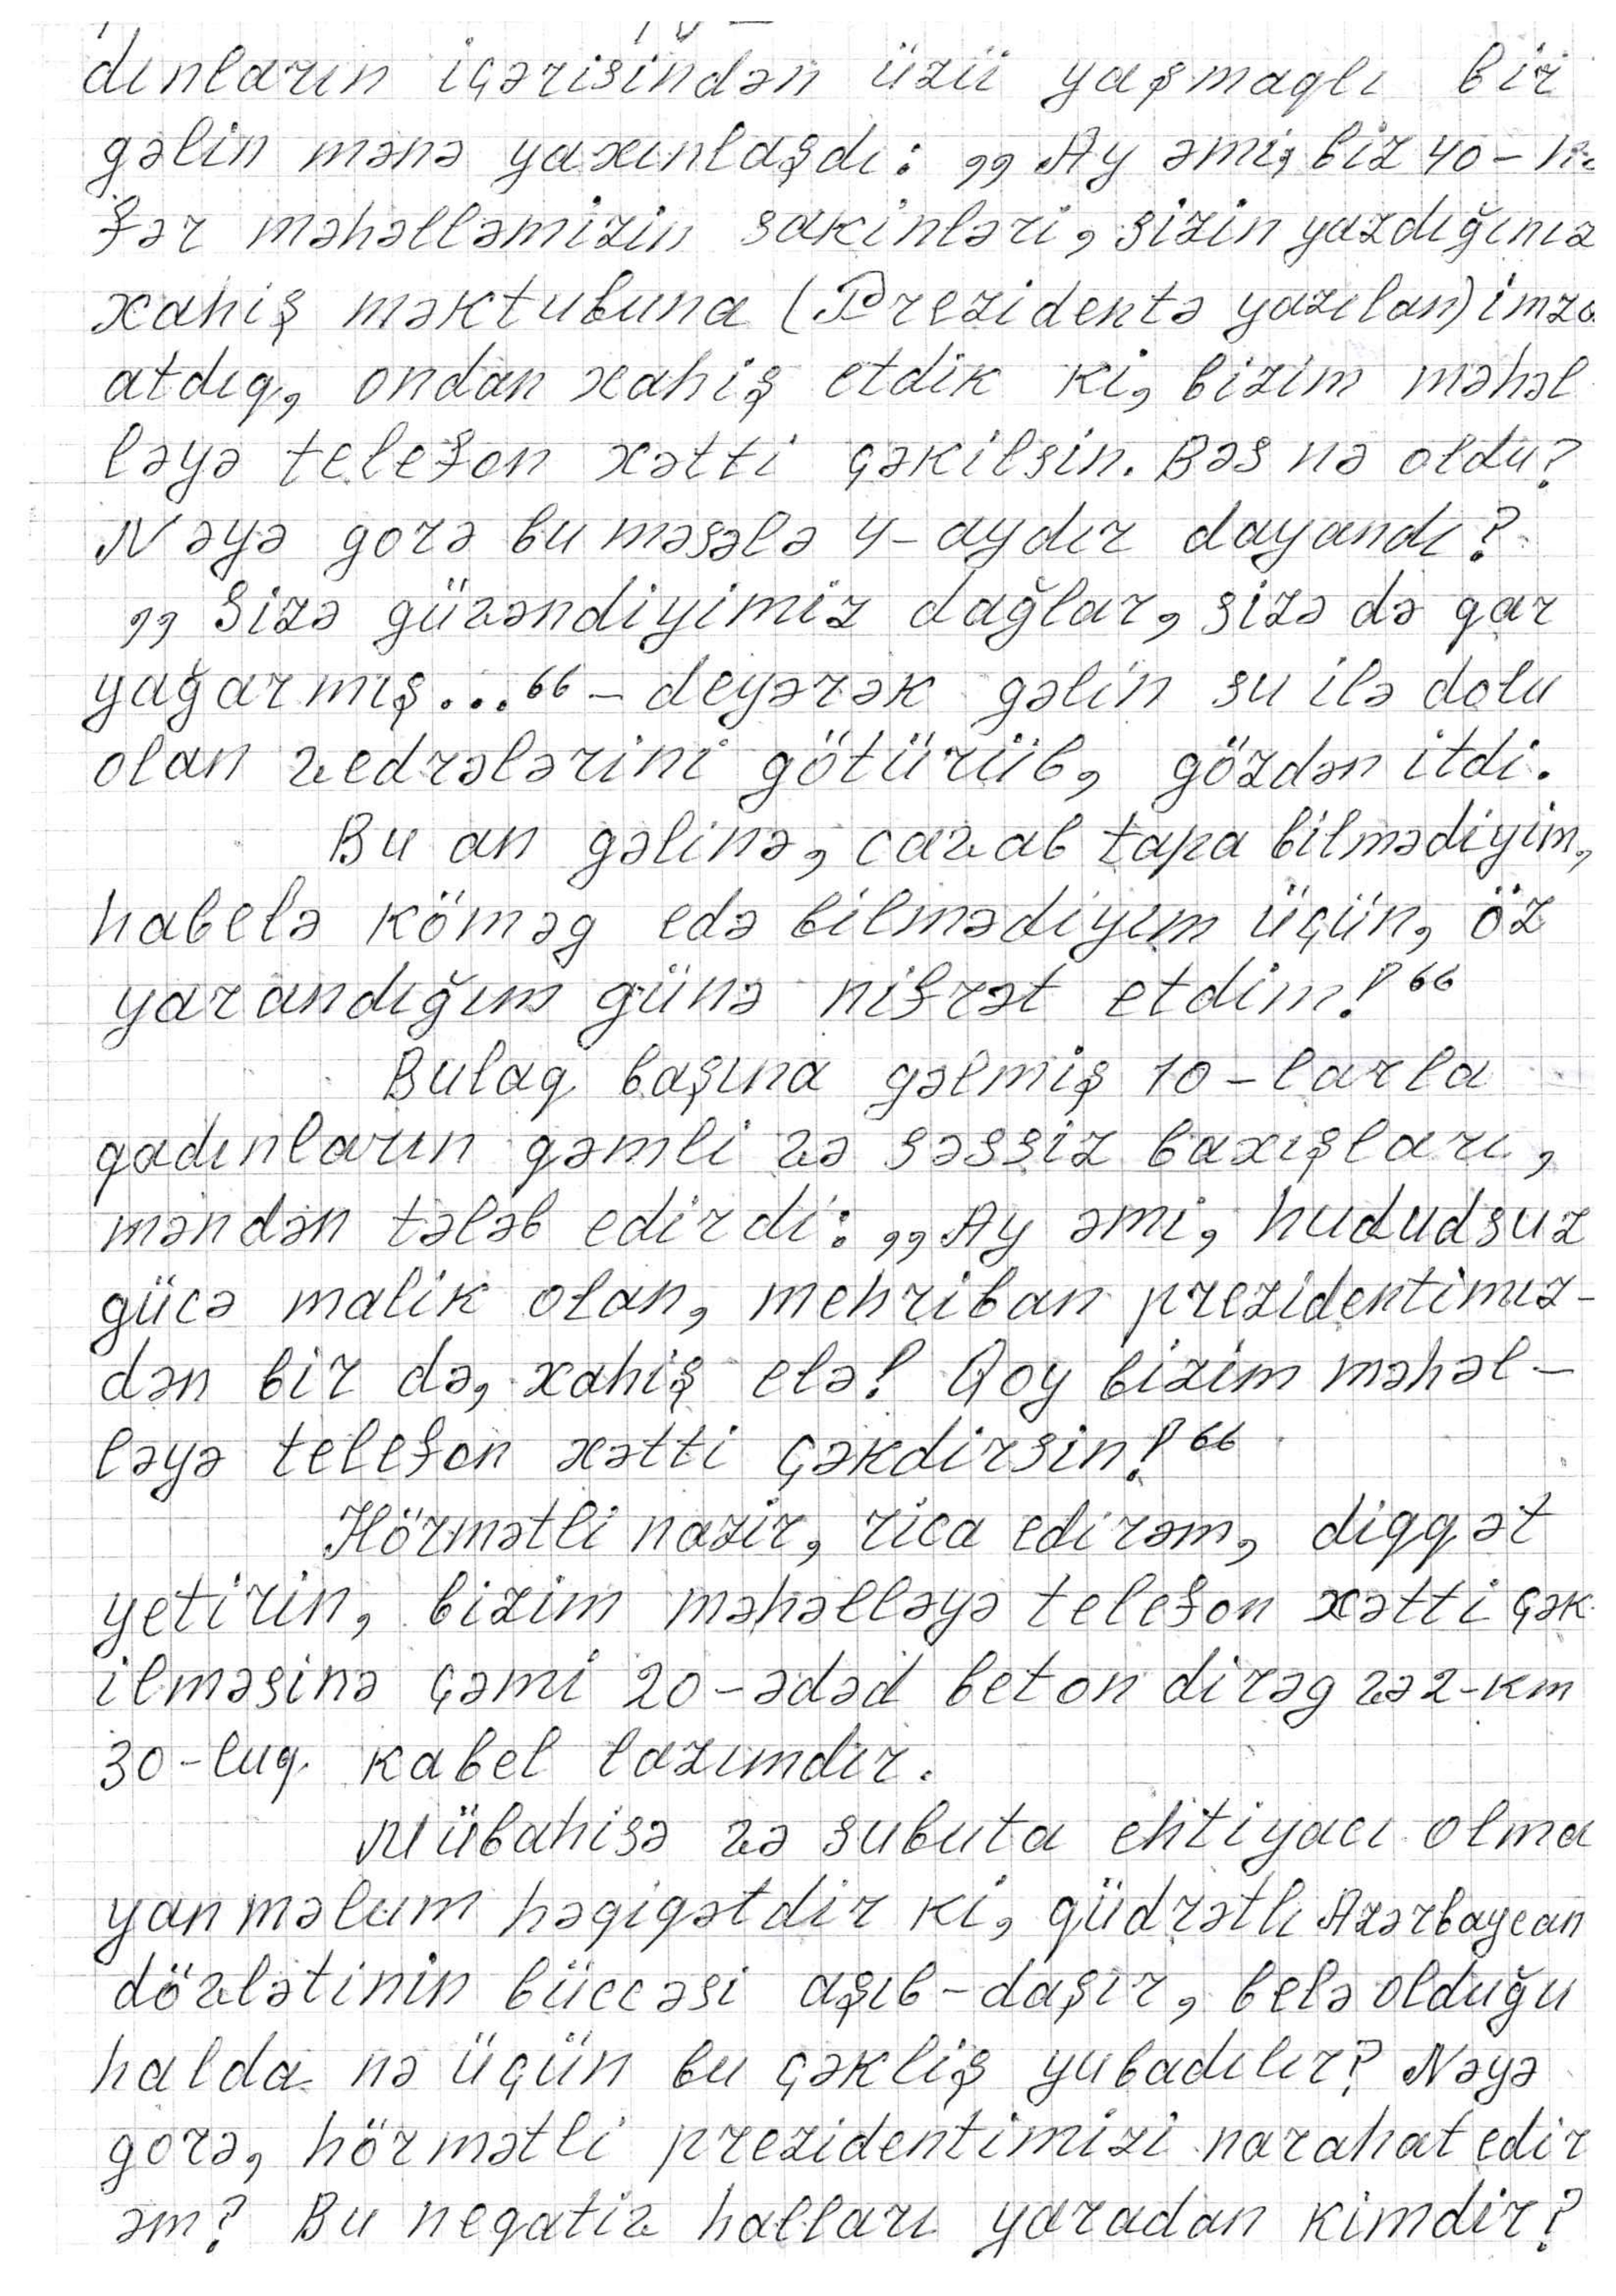 dınların içərisindən üzü yaşmaqlı bir
gəlin mənə yaxınlaşdı: „Ay əmi, biz 40-nə
fər məhəlləmizin sakinləri, sizin yazdığınız
xahiş məktubuna (Prezidentə yazılan) imza
atdıq, ondan xahiş etdik ki, bizim məhəl
ləyə telefon xətti çəkilsin. Bəs nə oldu?
Nəyə gorə bu məsələ 4-aydır dayandı?
„Sizə güvəndiyimiz dağlar, sizə də qar
yağarmış...“ – deyərək gəlin su ilə dolu
olan vedrələrini götürüb, gözdən itdi.
Bu an gəlinə, cavab tapa bilmədiyim,
habelə köməg edə bilmədiyım üçün, öz
yarandığım günə nifrət etdim!“
Bulaq başına gəlmiş 10-larla
qadınların qəmli və səssiz baxışları,
məndən tələb edirdi: „Ay əmi, hududsuz
gücə malik olan, mehriban prezidentimız-
dən bir də, xahiş elə! Qoy bizim məhəl-
ləyə telefon xətti çəkdirsin!“
Hörmətli nazir, rica edirəm, diqqət
yetirin, bizim məhəlləyə telefon xətti çək
ilməsinə çəmi 20-ədəd beton dirəg və 2-km
30-luq kabel lazımdır.
Mübahisə və subuta ehtiyacı olma
yan məlum həqiqətdir ki, qüdrətli Azərbaycan
dövlətinin büccəsi aşıb-daşır, belə olduğu
halda nə üçün bu çəkliş yubadılır? Nəyə
gorə, hörmətli prezidentimizi narahat edir
əm? Bu neqativ halları yaradan kimdir?